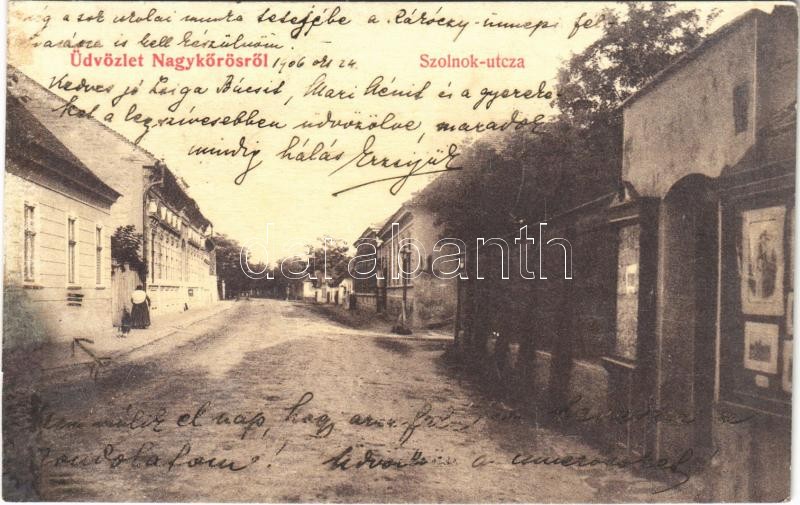 még a sok iskolai munka tetejébe a Rákóczy-ünnepi fel-
is kell készülnöm.
Üdvözlet Nagykőrösről 1906 okt 24. Szolnok-utcza
Kedves jó Ziga Bácsit, Mari Nénit és a gyereke-
ket a legszívesebben üdvözölve, maradok
mindig hálás Erzsijük
darabanth
Nem múlik el nap, hogy
gondolatom! Üdvözlöm a